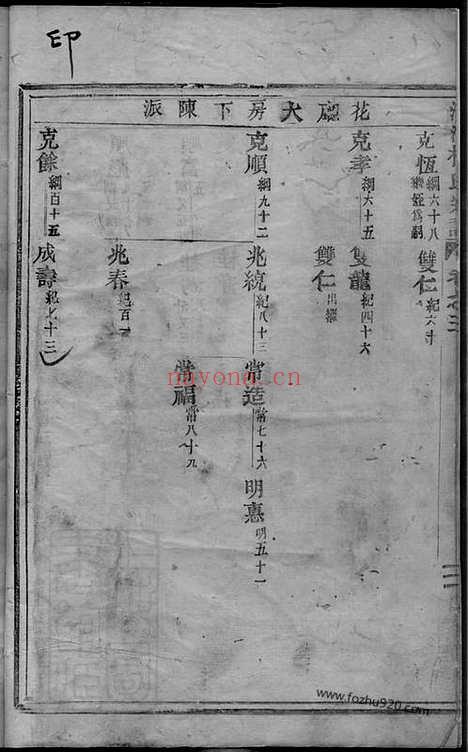 印
花廳大房下陳派
克恆 綱六十八 雙仁 紀六十
克孝 綱六十五 雙龍 紀四十六
雙仁 出繼
克順 綱九十二 兆統 紀八十三 常造 常七十六 明惠 明五十一
常福 常八十九
兆春 紀百一
克餘 綱百十五 成壽 紀七十三
nayona.cn
www.fozhu920.com